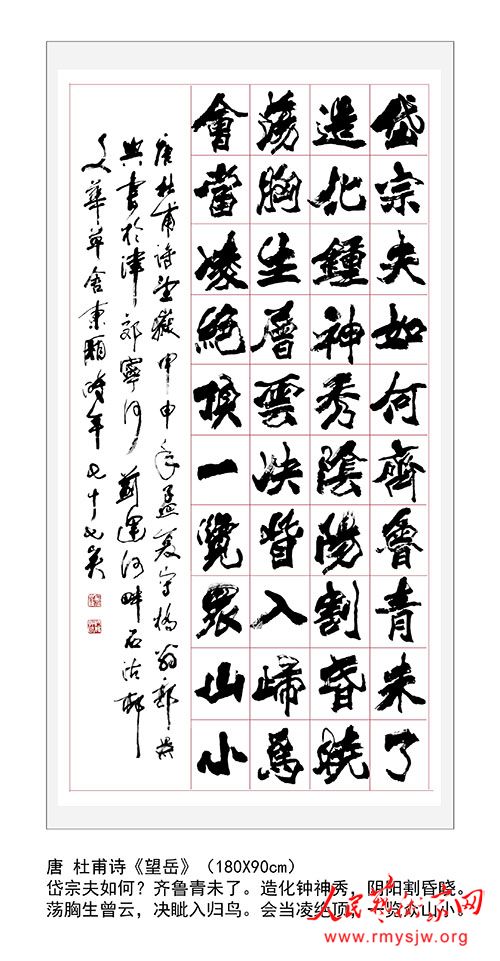 岱宗夫如何齊魯青未了
造化鍾神秀陰陽割昏曉
蕩胸生層雲決眥入歸鳥
會當凌絕頂一覽眾山小
唐杜甫詩望嶽甲申年孟夏守橋翁郭
書於津郊寧河薊運河畔石沽
文華草舍東廂時年七十七矣
唐 杜甫诗《望岳》（180X90cm）
岱宗夫如何？齐鲁青未了。造化钟神秀，阴阳割昏晓。
荡胸生曾云，决眦入归鸟。会当凌绝顶，一览众山小。
人民艺术家网
www.rmysjw.org